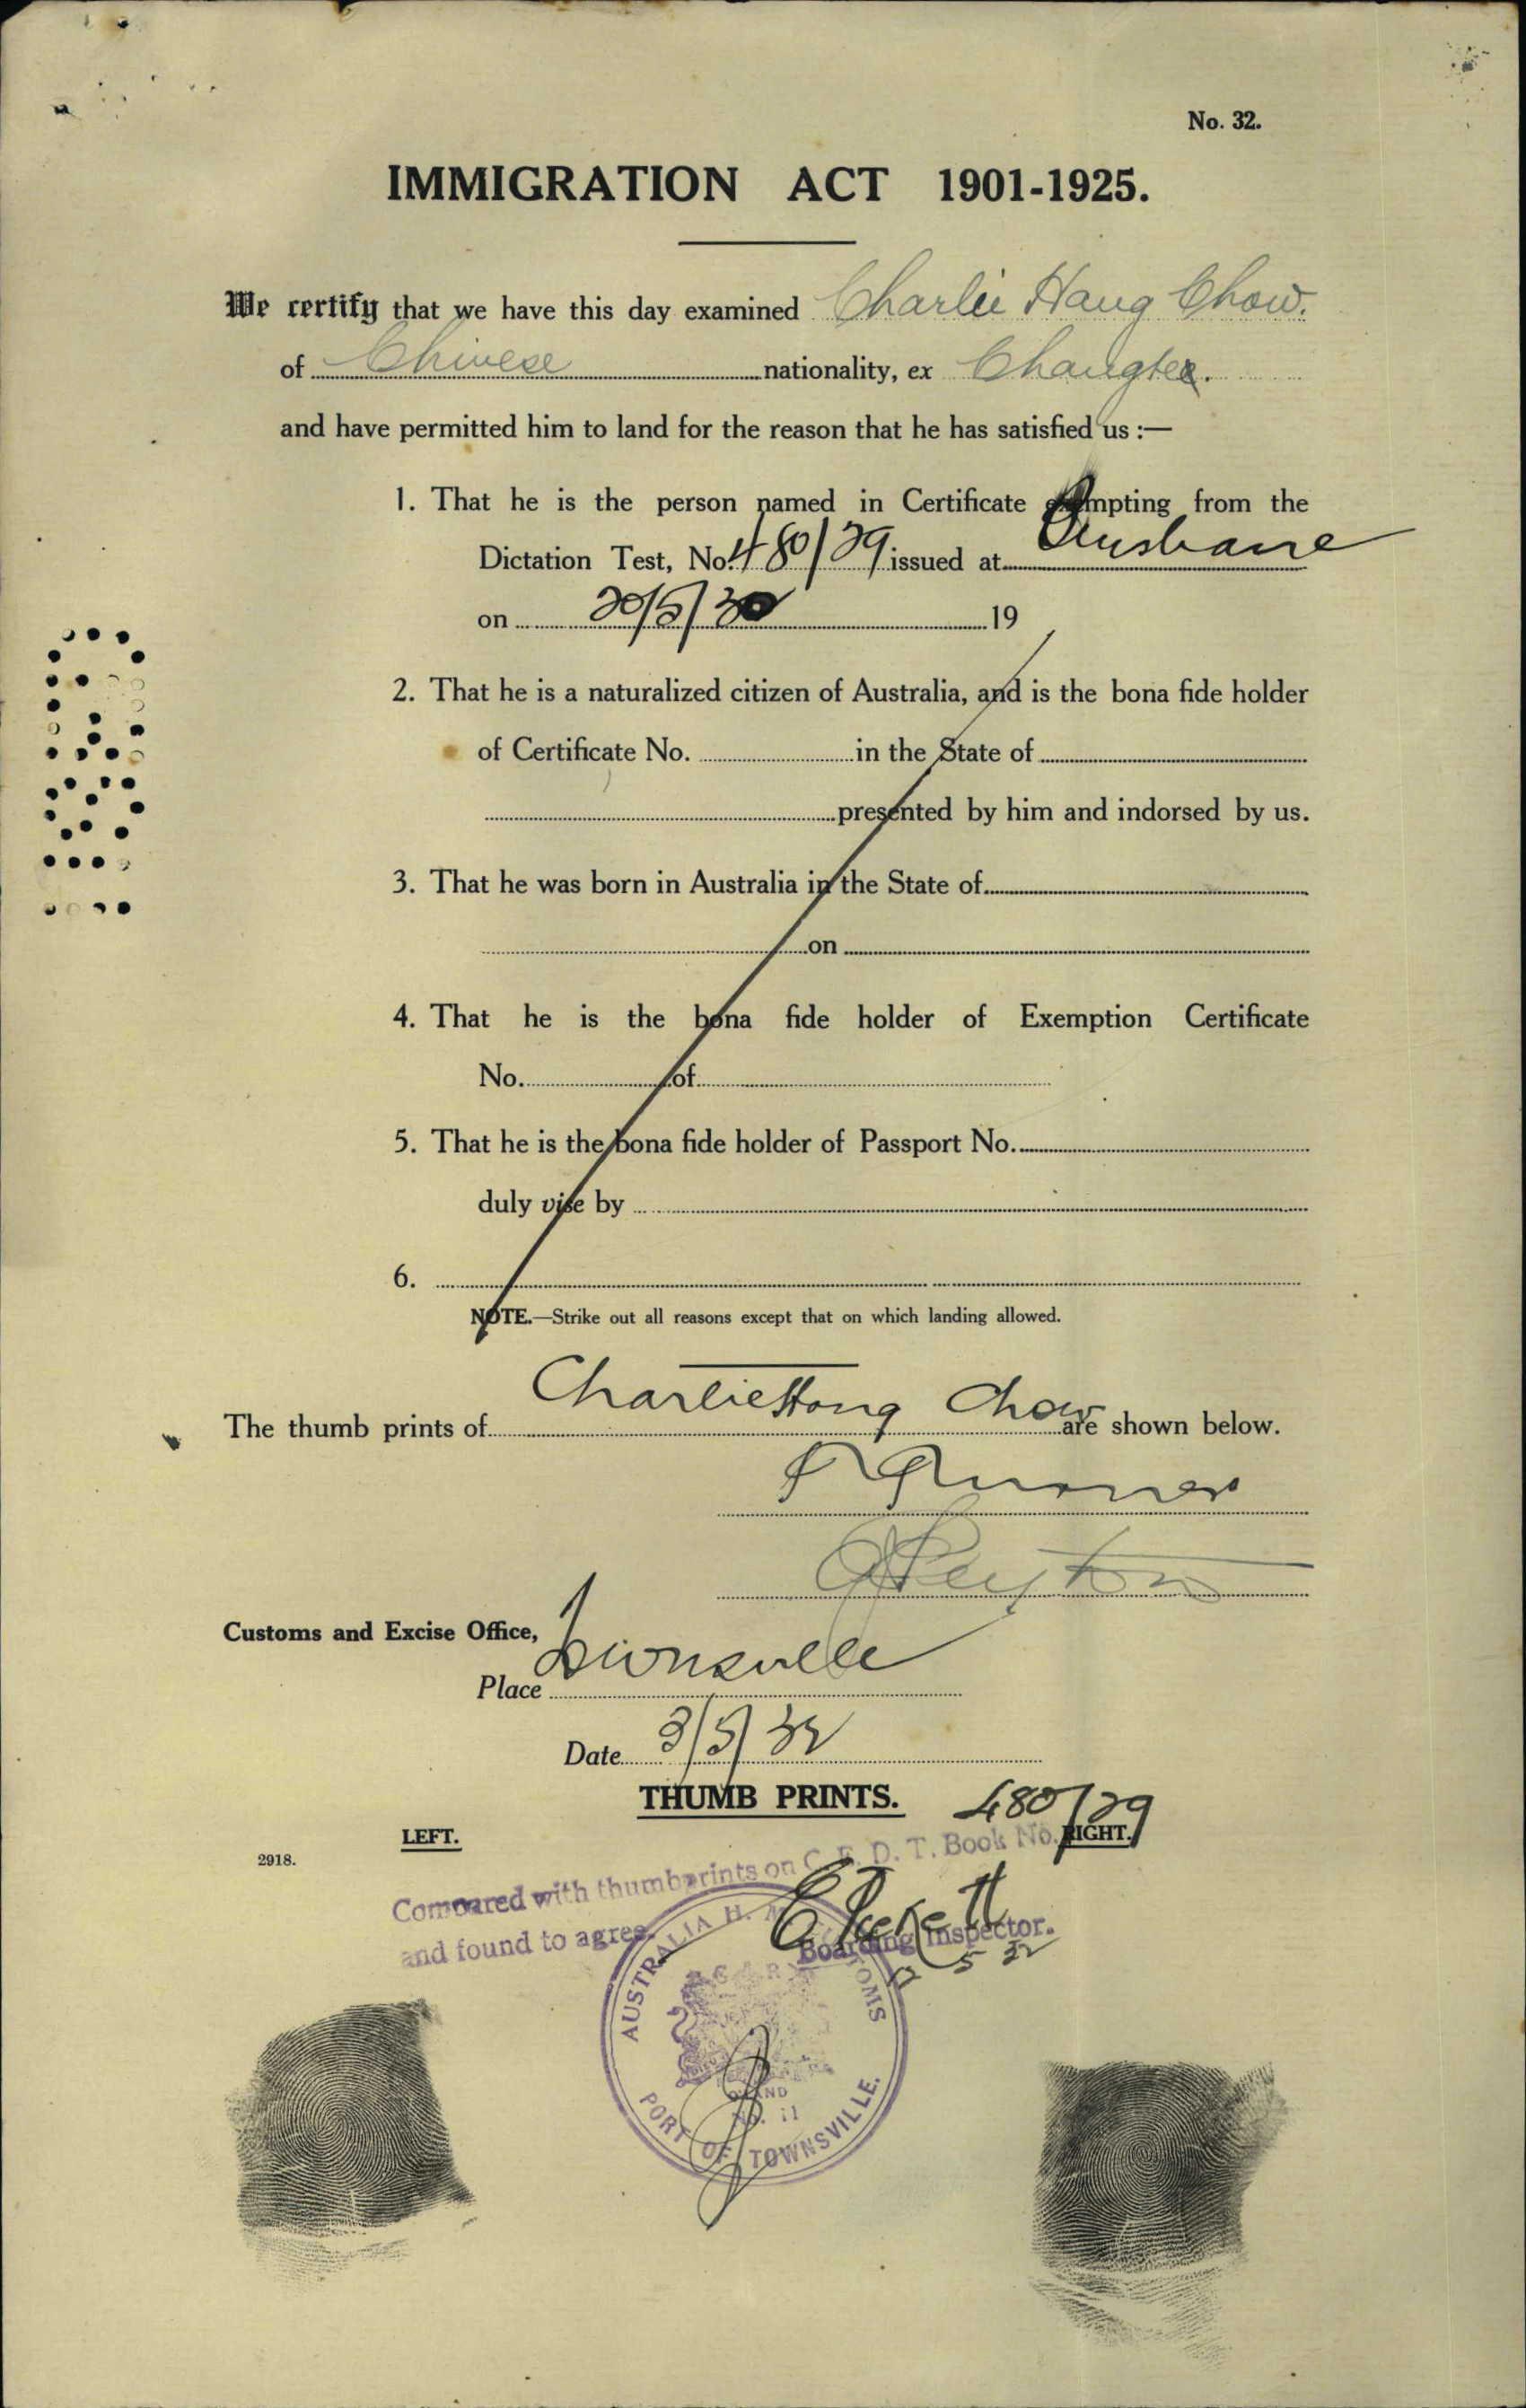 No. 32.
IMMIGRATION ACT 1901-1925.
We certify that we have this day examined Charlie Hang Chow.
of Chinese nationality, ex Changte.
and have permitted him to land for the reason that he has satisfied us :—
1. That he is the person named in Certificate exempting from the
Dictation Test, No. 480/29 issued at Brisbane
on 20/5/30 19
2. That he is a naturalized citizen of Australia, and is the bona fide holder
of Certificate No. in the State of
presented by him and indorsed by us.
3. That he was born in Australia in the State of
on
4. That he is the bona fide holder of Exemption Certificate
No. of
5. That he is the bona fide holder of Passport No.
duly vise by
6.
NOTE.—Strike out all reasons except that on which landing allowed.
The thumb prints of Charlie Hong Chow are shown below.
Customs and Excise Office,
Place Townsville
Date 3/5/32
THUMB PRINTS. 480/29
LEFT. RIGHT.
2918.
Compared with thumbprints on C. E. D. T. Book No.
and found to agree.
Boarding Inspector.
5 32
AUSTRALIA H. M. CUSTOMS
No. 11
PORT OF TOWNSVILLE.